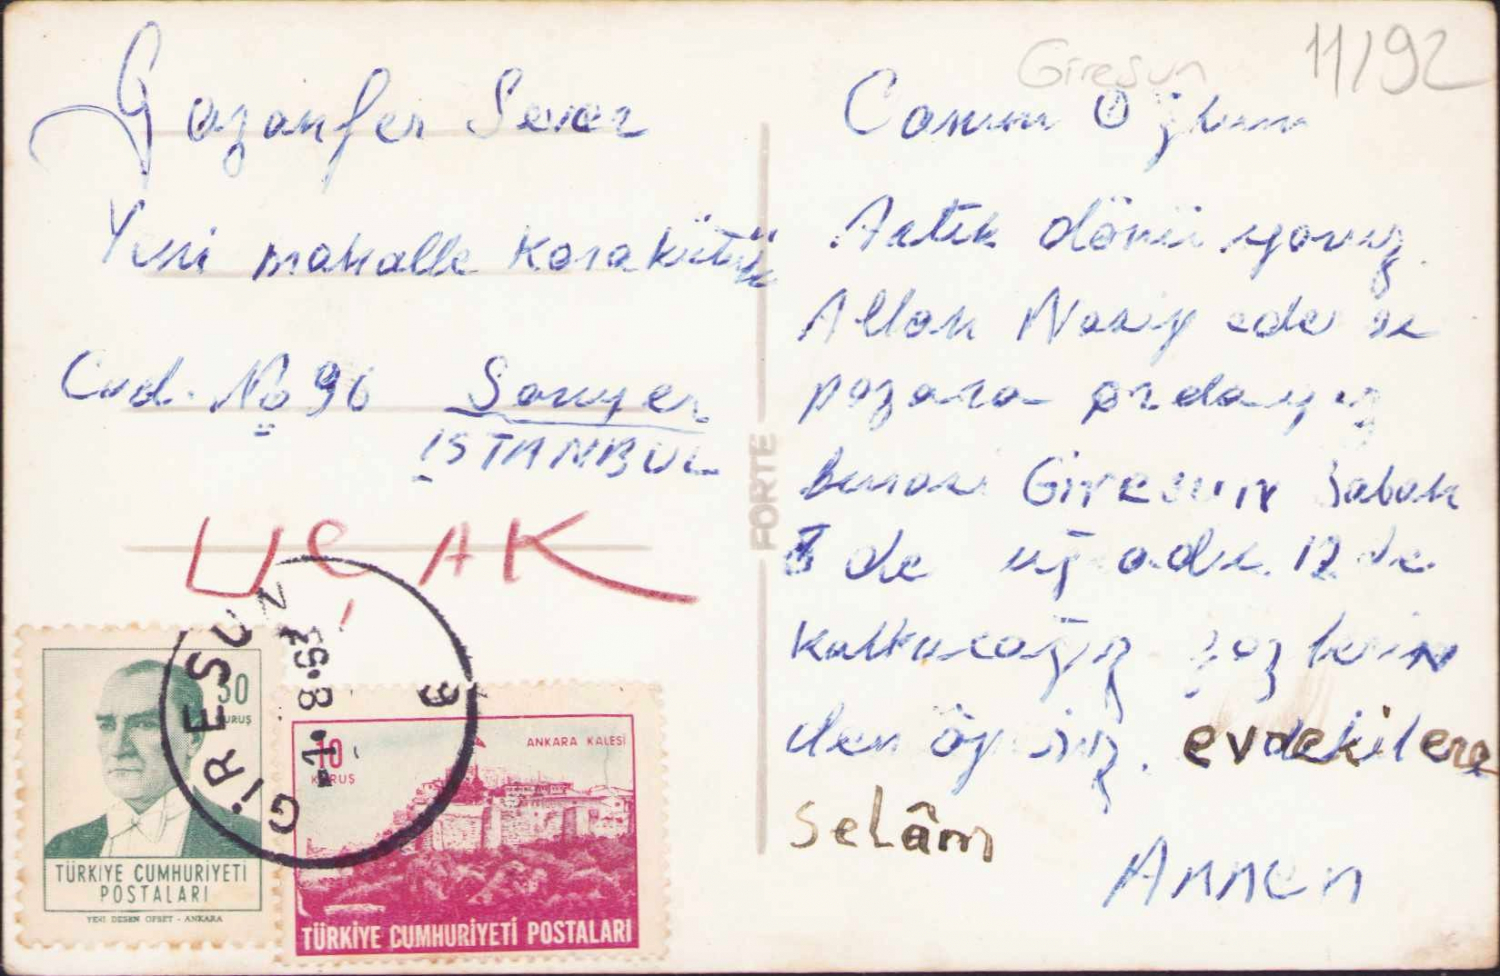 Giresun 11/92
Gazanfer Sever
Yeni mahalle Karakütük
Cad. No 96 Sarıyer
İSTANBUL
UÇAK
GİRESUN
-1.8.53
30
KURUŞ
TÜRKİYE CUMHURİYETİ
POSTALARI
YENİ DESEN OFSET - ANKARA
10
KURUŞ
ANKARA KALESİ
TÜRKİYE CUMHURİYETİ POSTALARI
FORTE
Canım Oğlum
Artık dönüyoruz.
Allah Nasip ederse
pazara ordayız
burası Giresun Sabah
8 de uğradı. 12 de
kalkacağız gözlerin
den öperiz. evdekilere
Selâm
Annen